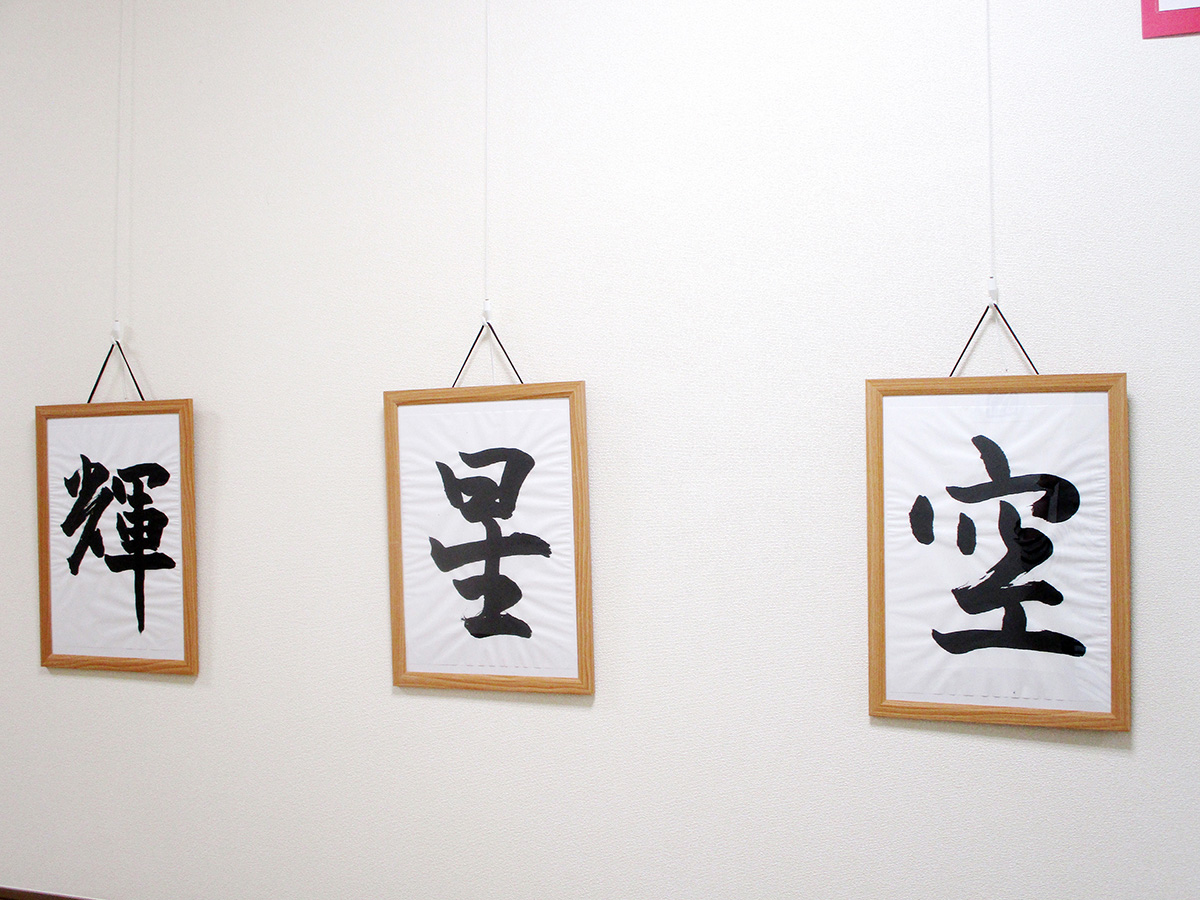 輝
星
空